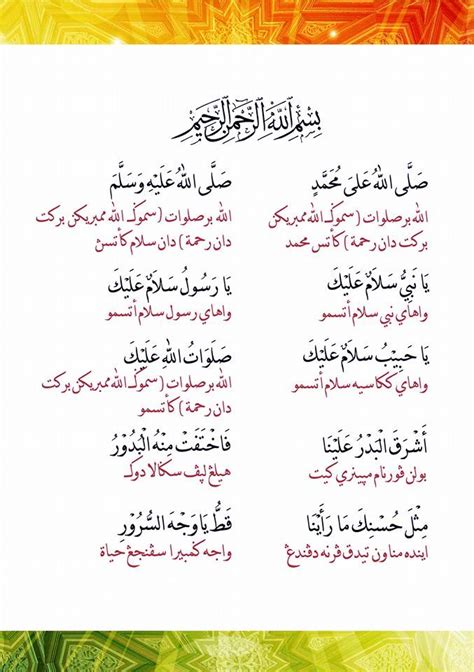 بِسْمِ اللهِ الرَّحْمٰنِ الرَّحِيْمِ
صَلَّى اللهُ عَلَى مُحَمَّدٍ
الله برصلوات (سموݢـ الله ممبريكن
بركت دان رحمة) كأتس محمد
صَلَّى اللهُ عَلَيْهِ وَسَلَّمَ
الله برصلوات (سموݢـ الله ممبريكن بركت
دان رحمة) دان سلام كأتسڽ
يَا نَبِيُّ سَلَامٌ عَلَيْكَ
واهاي نبي سلام أتسمو
يَا رَسُولُ سَلَامٌ عَلَيْكَ
واهاي رسول سلام أتسمو
يَا حَبِيْبُ سَلَامٌ عَلَيْكَ
واهاي ككاسيه سلام أتسمو
صَلَوَاتُ اللهِ عَلَيْكَ
الله برصلوات (سموݢـ الله ممبريكن بركت
دان رحمة) كأتسمو
أَشْرَقَ الْبَدْرُ عَلَيْنَا
بولن ڤورنام مڽينري كيت
فَاخْتَفَتْ مِنْهُ الْبُدُوْرُ
هيلڠ ليڤ سݢالا دوكـ
مِثْلَ حُسْنِكَ مَا رَأَيْنَا
اينده مناون تيدق ڤرنه دڤندڠ
قَطُّ يَا وَجْهَ السُّرُوْرِ
واجه ݢمبيرا سڤنجڠ حياة